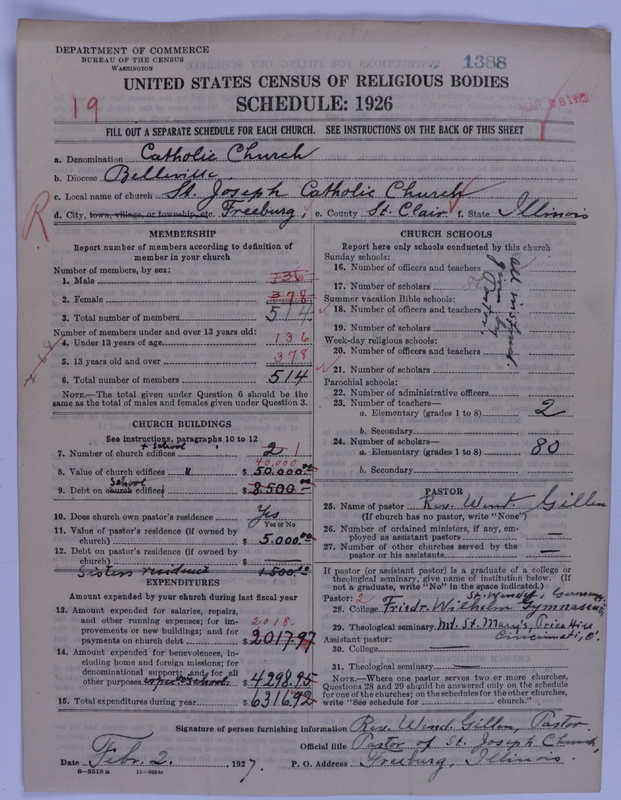 DEPARTMENT OF COMMERCE
BUREAU OF THE CENSUS
WASHINGTON
1388
UNITED STATES CENSUS OF RELIGIOUS BODIES
SCHEDULE: 1926
19
FILL OUT A SEPARATE SCHEDULE FOR EACH CHURCH. SEE INSTRUCTIONS ON THE BACK OF THIS SHEET
a. Denomination Catholic Church
b. Diocese Belleville
c. Local name of church St. Joseph Catholic Church
d. City, town, village, or township, etc. Freeburg, e. County St. Clair f. State Illinois
R
MEMBERSHIP
Report number of members according to definition of
member in your church
Number of members, by sex:
1. Male 136
2. Female 378
3. Total number of members 514
Number of members under and over 13 years old:
4. Under 13 years of age 136
5. 13 years old and over 378
6. Total number of members 514
NOTE.—The total given under Question 6 should be the
same as the total of males and females given under Question 3.
CHURCH BUILDINGS
See instructions, paragraphs 10 to 12
+ School
7. Number of church edifices 2 1
40,000
8. Value of church edifices " $ 50.000.00
School
9. Debt on church edifices $ 8.500.—
10. Does church own pastor's residence Yes
Yes or No
11. Value of pastor's residence (if owned by
church) $ 5.000.00
12. Debt on pastor's residence (if owned by
church) $ —
Sisters residence 1.500.00
EXPENDITURES
Amount expended by your church during last fiscal year
13. Amount expended for salaries, repairs,
and other running expenses; for im- 2018.
provements or new buildings; and for
payments on church debt $ 2017.97
14. Amount expended for benevolences, in-
cluding home and foreign missions; for
denominational support; and for all
other purposes espec. School. $ 4298.95
15. Total expenditures during year $ 6316.92
CHURCH SCHOOLS
Report here only schools conducted by this church
Sunday schools:
16. Number of officers and teachers
17. Number of scholars
Summer vacation Bible schools:
18. Number of officers and teachers
19. Number of scholars
Week-day religious schools:
20. Number of officers and teachers
21. Number of scholars
Parochial schools:
22. Number of administrative officers
23. Number of teachers—
a. Elementary (grades 1 to 8) 2
b. Secondary
24. Number of scholars—
a. Elementary (grades 1 to 8) 80
b. Secondary
PASTOR
25. Name of pastor Rev. Wend. Gillen
(If church has no pastor, write "None")
26. Number of ordained ministers, if any, em-
ployed as assistant pastors —
27. Number of other churches served by the
pastor or his assistants —
If pastor (or assistant pastor) is a graduate of a college or
theological seminary, give name of institution below. (If
not a graduate, write "No" in the space indicated.)
Pastor: 2 St. Wendel, Germany
28. College Friedr. Wilhelm Gymnasium
29. Theological seminary Mt. St. Mary's, Price Hill
Assistant pastor: Cincinnati, O.
30. College —
31. Theological seminary —
NOTE.—Where one pastor serves two or more churches,
Questions 28 and 29 should be answered only on the schedule
for one of the churches; on the schedules for the other churches,
write "See schedule for church."
Signature of person furnishing information Rev. Wend. Gillen, Pastor
Official title Pastor of St. Joseph Church,
Date Febr. 2. , 1927. P. O. Address Freeburg, Illinois.
8—5518 a